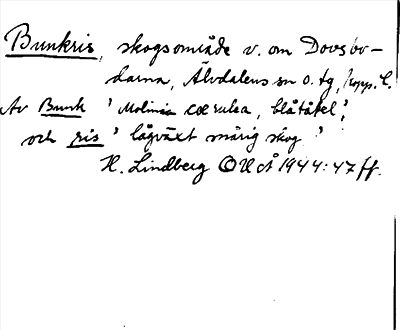 Bunkris, skogsområde v. om Dovsjöv-
darna, Älvdalens sn o. tg, Kopp. l.
Av Bunk 'Molinia coerulea, blåtåtel',
och ris 'lågväxt snårig skog'
H. Lindberg OUÅ 1944:47 ff.